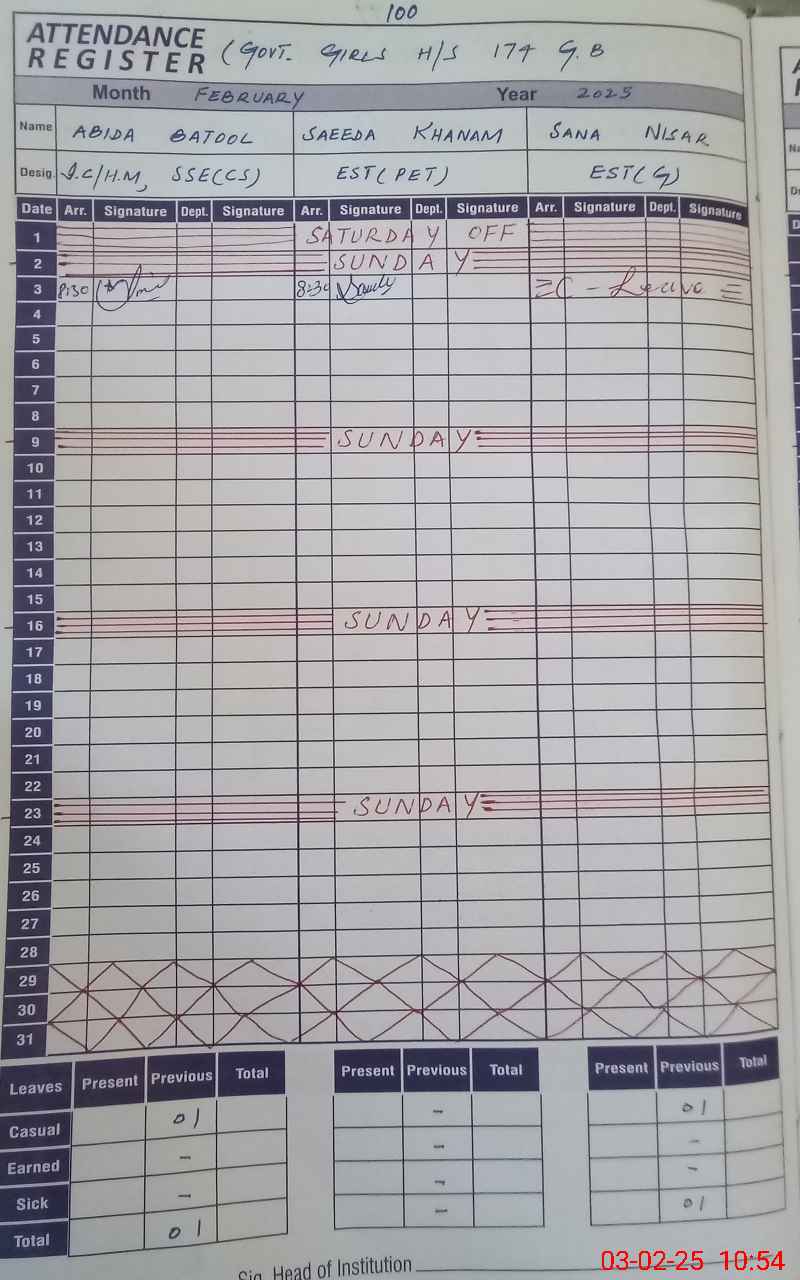 100
ATTENDANCE
REGISTER (GOVT. GIRLS H/S 174 G.B
Month FEBRUARY Year 2025
Name ABIDA BATOOL SAEEDA KHANAM SANA NISAR
Desig. I.C/H.M, SSE(CS) EST(PET) EST(G)
Date Arr. Signature Dept. Signature Arr. Signature Dept. Signature Arr. Signature Dept. Signature
1 SATURDAY OFF
2 SUNDAY
3 8:30 8:30 C-Leave
4
5
6
7
8
9 SUNDAY
10
11
12
13
14
15
16 SUNDAY
17
18
19
20
21
22
23 SUNDAY
24
25
26
27
28
29
30
31
Leaves Present Previous Total Present Previous Total Present Previous Total
Casual 01 - 01
Earned - - -
Sick - - -
Total 01 - 01
Sig. Head of Institution
03-02-25 10:54